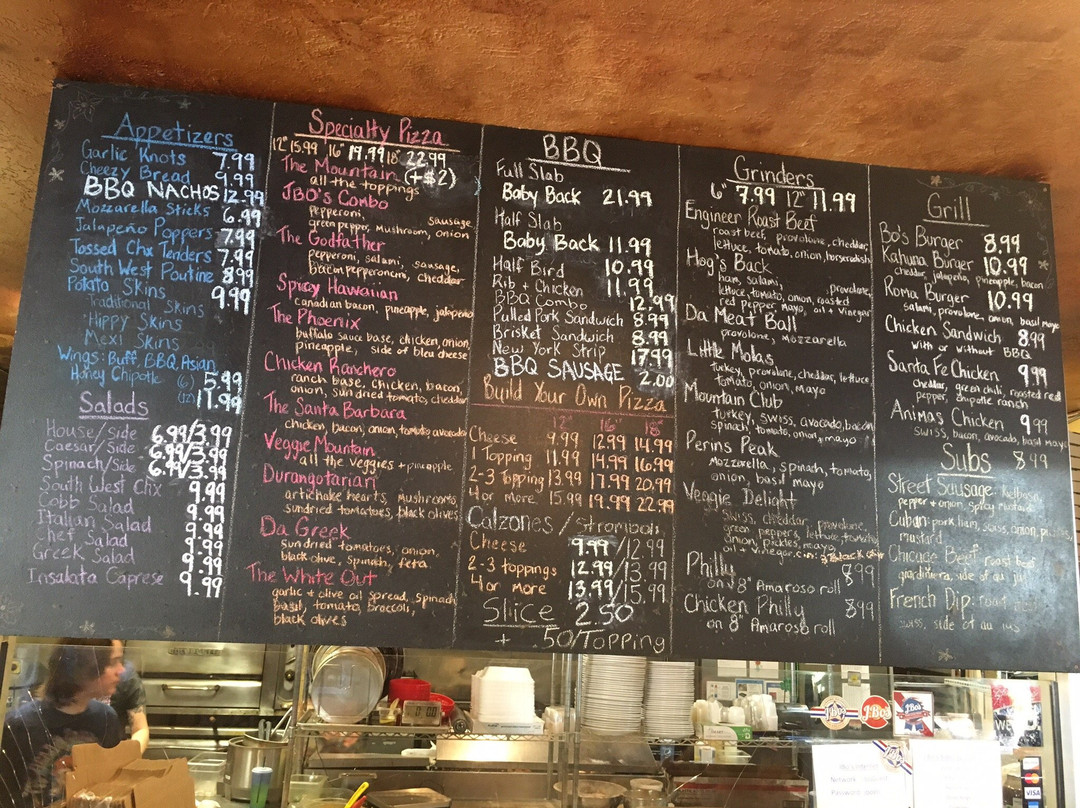 Appetizers
Garlic Knots 7.99
Cheezy Bread 9.99
BBQ NACHOS 12.99
Mozzarella Sticks 6.99
Jalapeño Poppers 7.99
Tossed Chx Tenders 7.99
South West Poutine 8.99
Potato Skins 9.99
Traditional Skins
Hippy Skins
Mexi Skins
Wings: Buff BBQ Asian
Honey Chipotle (6) 5.99
(12) 11.99
Salads
House/side 6.99/3.99
Caesar/Side 6.99/3.99
Spinach/Side 6.99/3.99
South West Chx 9.99
Cobb Salad 9.99
Italian Salad 9.99
Chef Salad 9.99
Greek Salad 9.99
Insalata Caprese 9.99
Specialty Pizza
12" 15.99 16" 19.99 18" 22.99
The Mountain (+$2)
all the toppings
JBO's Combo
pepperoni, sausage,
green pepper, mushroom, onion
The Godfather
pepperoni, salami, sausage,
bacon, pepperoncini, cheddar
Spicy Hawaiian
canadian bacon, pineapple, jalapeño
The Phoenix
buffalo sauce base, chicken, onion,
pineapple, side of bleu cheese
Chicken Ranchero
ranch base, chicken, bacon,
onion, sundried tomato, cheddar
The Santa Barbara
chicken, bacon, onion, tomato, avocado
Veggie Mountain
all the veggies + pineapple
Durangotarian
artichoke hearts, mushrooms,
sundried tomatoes, black olives
Da Greek
sundried tomatoes, onion,
black olive, spinach, feta
The White Out
garlic + olive oil spread, spinach
basil, tomato, broccoli,
black olives
BBQ
Full Slab
Baby Back 21.99
Half Slab
Baby Back 11.99
Half Bird 10.99
Rib + Chicken 11.99
BBQ Combo 12.99
Pulled Pork Sandwich 8.99
Brisket Sandwich 8.99
New York Strip 17.99
BBQ SAUSAGE 2.00
Build Your Own Pizza
12" 16" 18"
Cheese 9.99 12.99 14.99
1 Topping 11.99 14.99 16.99
2-3 Topping 13.99 17.99 20.99
4 or more 15.99 19.99 22.99
Calzones / strombolis
Cheese 9.99/12.99
2-3 toppings 12.99/13.99
4 or more 13.99/15.99
Slice 2.50
+ .50/Topping
Grinders
6" 7.99 12" 11.99
Engineer Roast Beef
roast beef, provolone, cheddar,
lettuce, tomato, onion, horseradish
Hog's Back
ham, salami, provolone,
lettuce, tomato, onion, roasted
red pepper mayo, oil + vinegar
Da Meat Ball
provolone, mozzarella
Little Molas
turkey, provolone, cheddar, lettuce,
tomato, onion, mayo
Mountain Club
turkey, swiss, avocado, bacon
spinach, tomato, onion, mayo
Perins Peak
mozzarella, spinach, tomato,
onion, basil mayo
Veggie Delight
swiss, cheddar, provolone,
green peppers, lettuce, tomato,
onion, pickles, mayo,
oil + vinegar
Philly 8.99
on 8" Amaroso roll
Chicken Philly 8.99
on 8" Amaroso roll
Grill
Bo's Burger 8.99
Kahuna Burger 10.99
cheddar, jalapeño, pineapple, bacon
Roma Burger 10.99
salami, provolone, onion, basil mayo
Chicken Sandwich 8.99
with or without BBQ
Santa Fe Chicken 9.99
cheddar, green chili, roasted red
pepper, chipotle ranch
Animas Chicken 9.99
swiss, bacon, avocado, basil mayo
Subs 8.99
Street Sausage: Kielbasa,
pepper + onion, spicy mustard
Cuban: pork, ham, swiss, onion, pickles,
mustard
Chicago Beef: roast beef
giardiniera, side of au jus
French Dip: roast
swiss, side of au jus
J.Bo's
J.Bo's
VISA